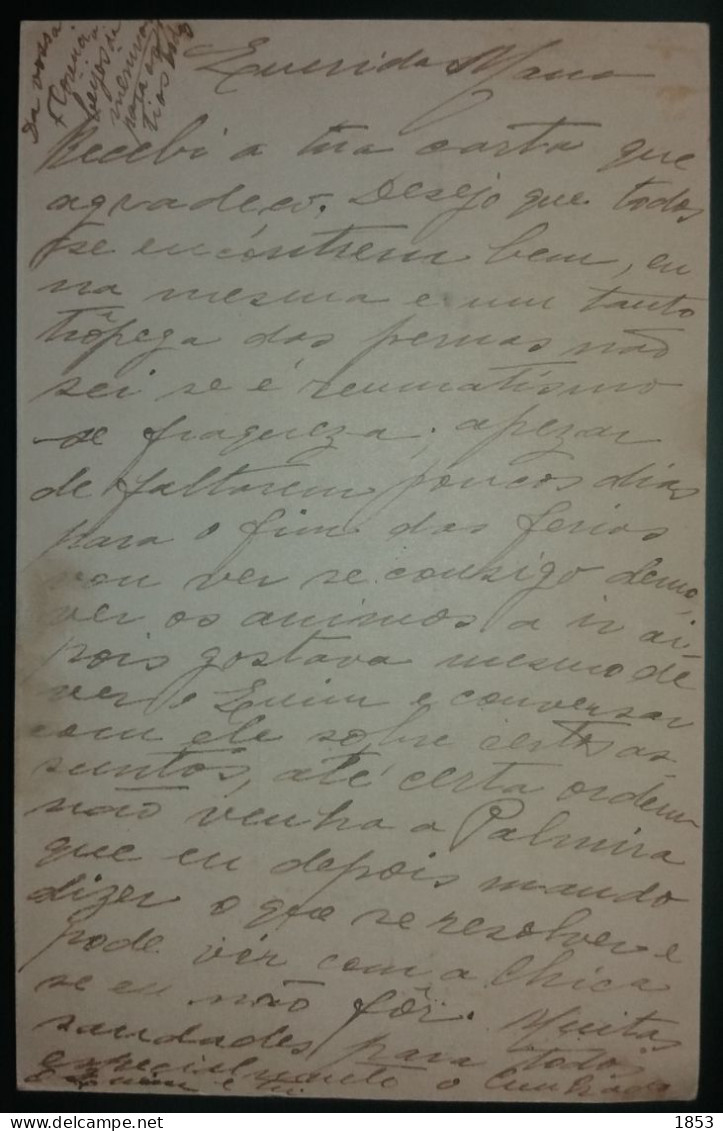 Da vossa
Florinda
beijos da
menina
para os
tios
Querida Mana
Recebi a tua carta que
agradeço. Desejo que todos
se encontrem bem, eu
na mesma e um tanto
trôpega das pernas não
sei se é reumatismo
se fraqueza; apezar
de faltarem poucos dias
para o fim das ferias
vou ver se consigo demo
ver os animos a ir ai
pois gostava mesmo de
ver o Zuim e conversar
com ele sobre certos as-
suntos, até certa ordem
não venha a Palmira
que eu depois mando
dizer o que se resolver e
pode vir com a Chica
se eu não fôr. Muitas
saudades para todos
especialmente o Cunhado
e ti
1853